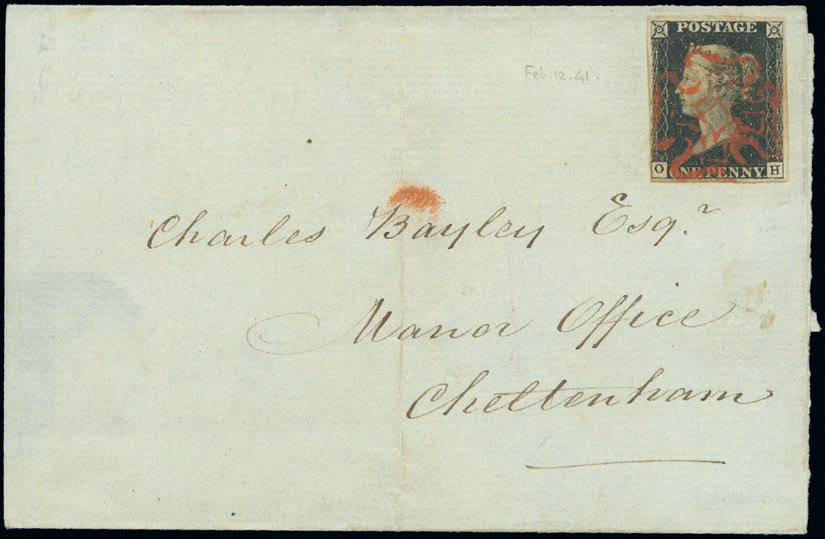 POSTAGE
Feb. 12. 41.
O ONE PENNY H
Charles Bayley Esqr.
Manor Office
Cheltenham